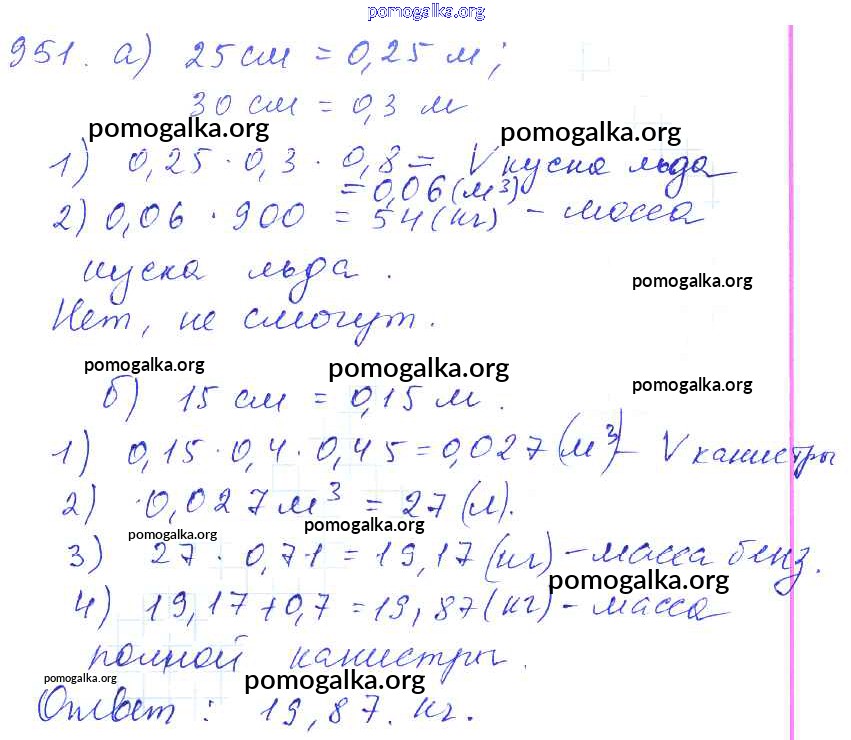 pomogalka.org
951. а) 25 см = 0,25 м;
30 см = 0,3 м
pomogalka.org pomogalka.org
1) 0,25 · 0,3 · 0,8 = V куска льда
= 0,06 (м³)
2) 0,06 · 900 = 54 (кг) - масса
куска льда.
pomogalka.org
Нет, не смогут.
pomogalka.org pomogalka.org
pomogalka.org
б) 15 см = 0,15 м.
1) 0,15 · 0,4 · 0,45 = 0,027 (м³) - V канистры
2) · 0,027 м³ = 27 (л).
pomogalka.org pomogalka.org
3) 27 · 0,71 = 19,17 (кг) - масса бенз.
pomogalka.org
4) 19,17 + 0,7 = 19,87 (кг) - масса
полной канистры.
pomogalka.org pomogalka.org
Ответ : 19,87. кг.